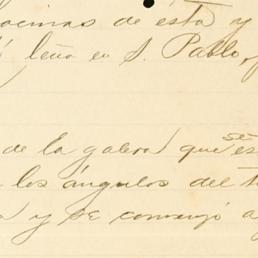 ocinas de ésta y
leña en S. Pablo,
de la galera que se es
los ángulos del t
y se comenzó a